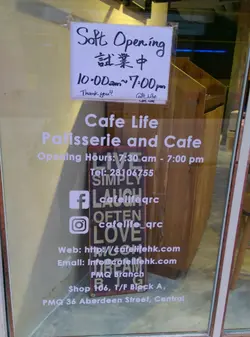 Soft Opening
試業中
10:00am~7:00pm
Thank you♡
Cafe Life
Patisserie and Cafe
Opening Hours: 7:30 am - 7:00 pm
Tel: 28106755
cafelifeqrc
cafelife_qrc
SIMPLY
LAUGH
OFTEN
LOVE
DREAM
Web: http://cafelifehk.com
Email: info@cafelifehk.com
PMQ Branch
Shop 106, 1/F Block A,
PMQ 36 Aberdeen Street, Central